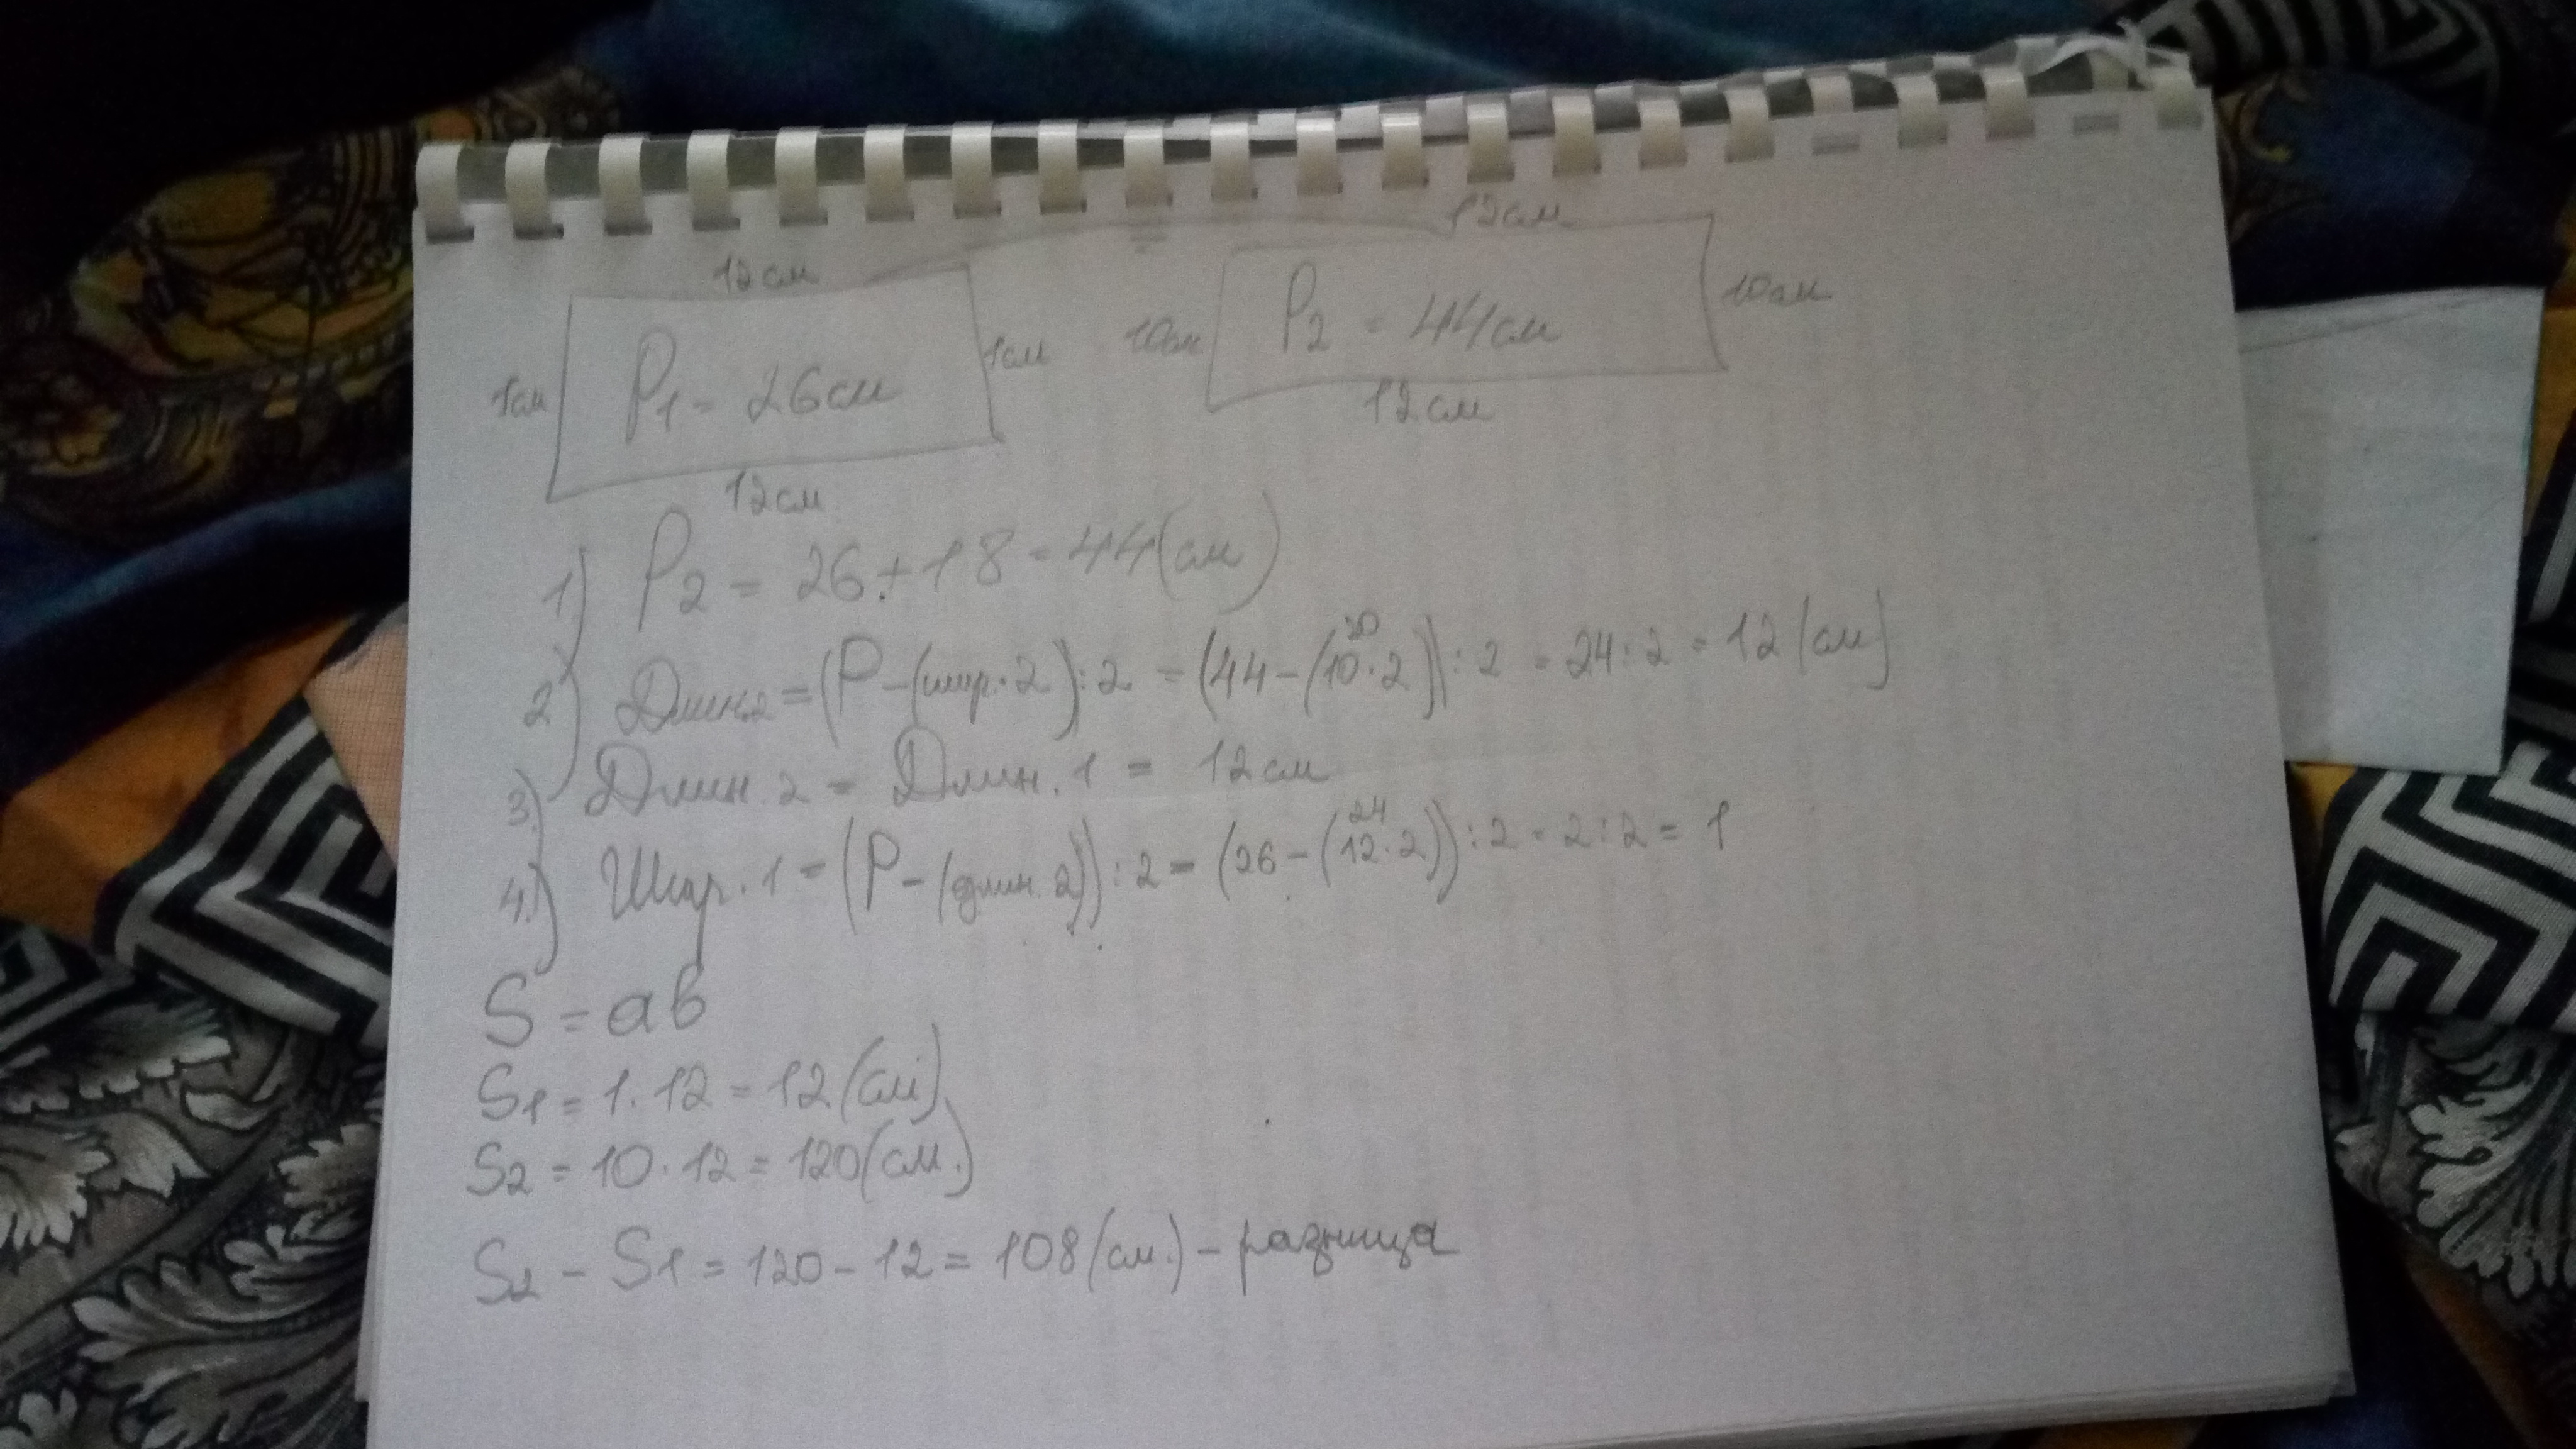 12см
12см
1см P1 = 26см 1см
10см P2 = 44см 10см
12см
12см
1) P2 = 26 + 18 = 44(см)
2) Длин.2 = (P - (шир. · 2)) : 2 = (44 - (10 · 2)) : 2 = 24 : 2 = 12 (см)
20
3) Длин. 2 = Длин. 1 = 12см
4) Шир. 1 = (P - (длин. 2)) : 2 = (26 - (12 · 2)) : 2 = 2 : 2 = 1
24
S = ab
S1 = 1 · 12 = 12 (см)
S2 = 10 · 12 = 120(см.)
S2 - S1 = 120 - 12 = 108 (см.) - разница